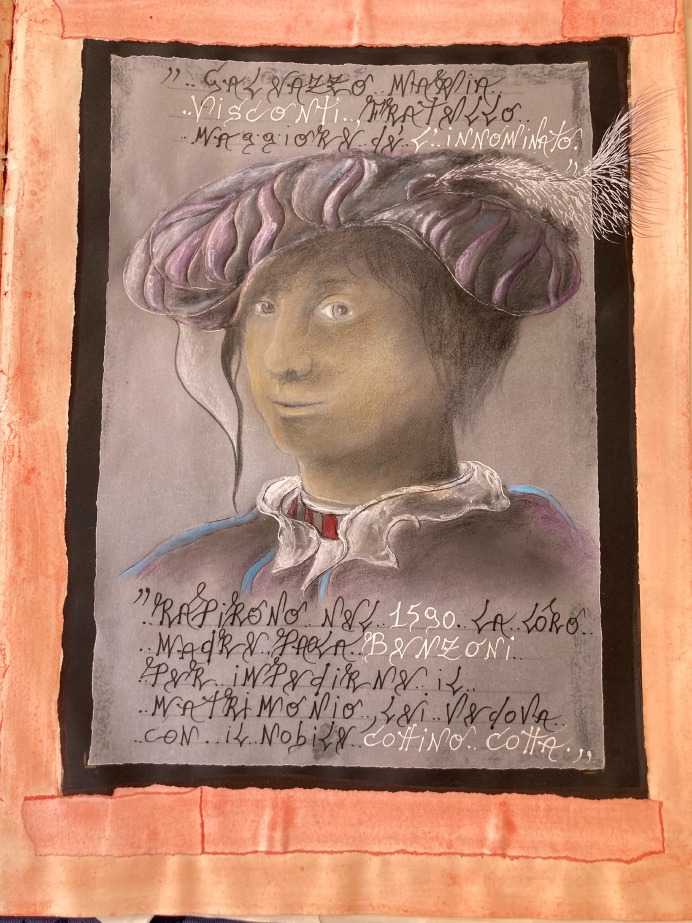 " GALEAZZO MARIA
VISCONTI, FRATELLO
MAGGIORE de L'INNOMINATO. "
" RAPIRONO NEL 1590 LA LORO
MADRE PAOLA BENZONI
PER IMPEDIRNE IL
MATRIMONIO, LEI VEDOVA
CON IL NOBILE COTTINO COTTA. "